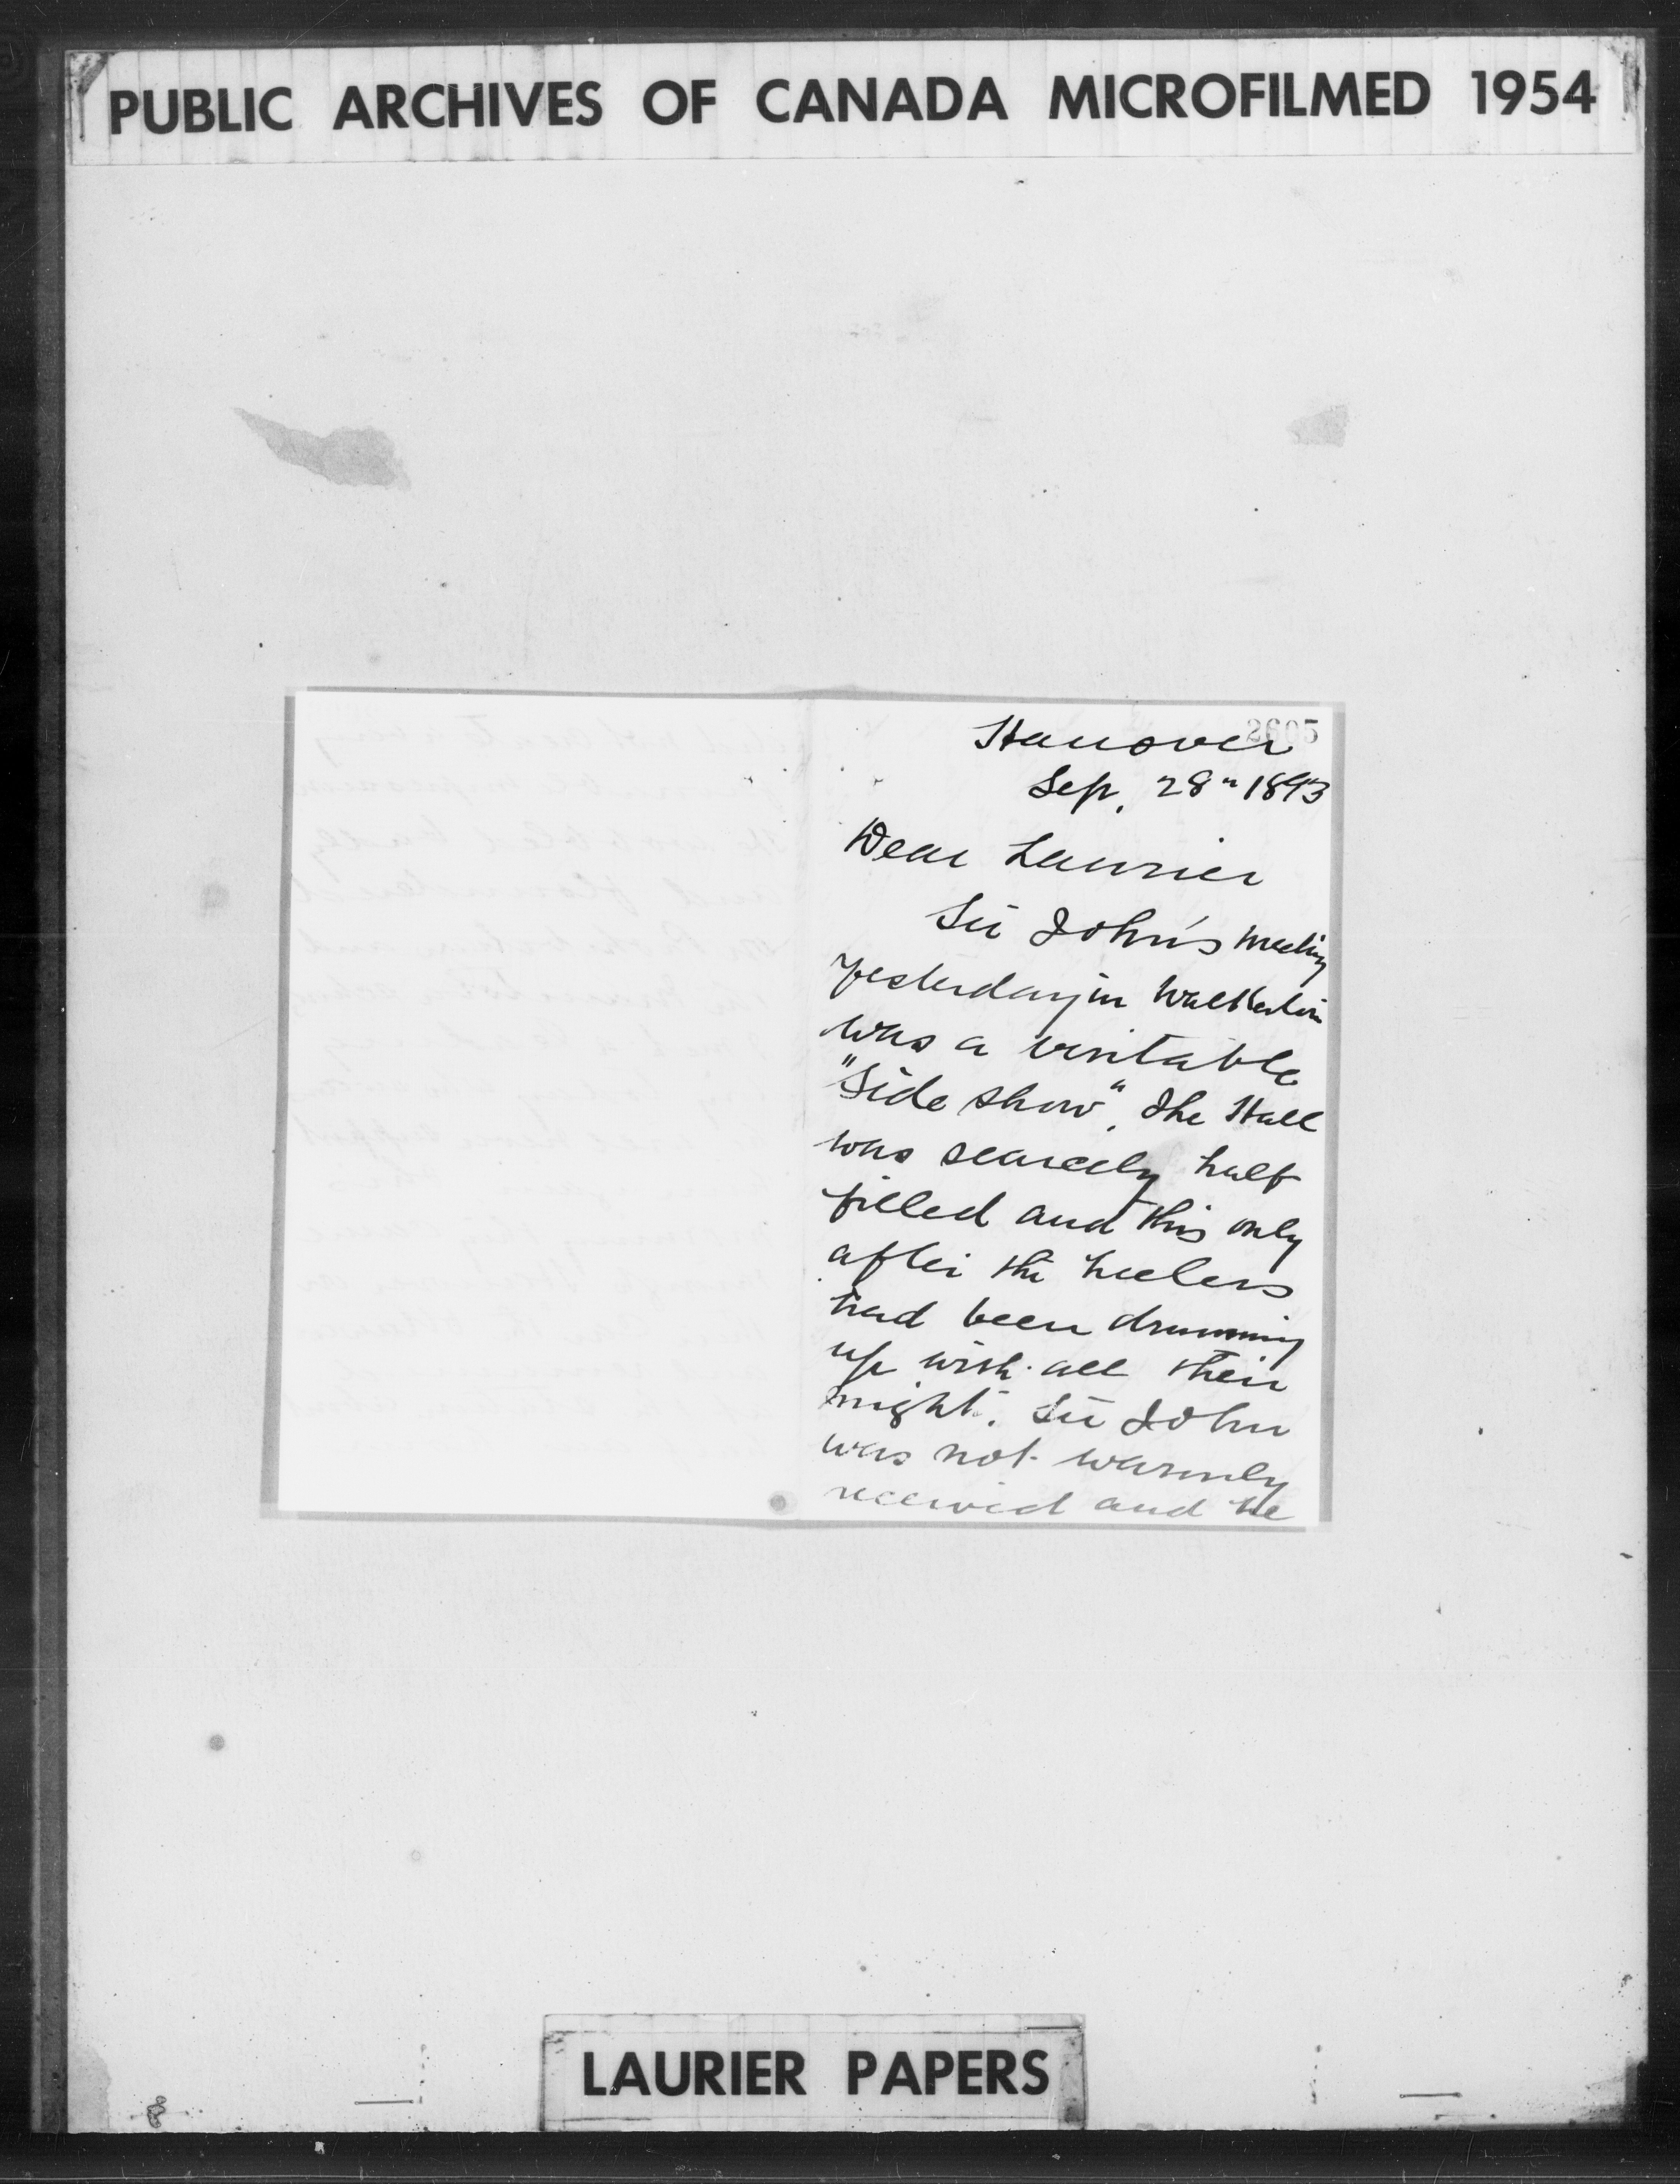 PUBLIC ARCHIVES OF CANADA MICROFILMED 1954
2605
Hanover
Sep. 28th 1893
Dear Laurier
Sir John's meeting
yesterday in Walkerton
was a veritable
"Side show". The Hall
was scarcely half
filled and this only
after the heelers
had been drumming
up with all their
might. Sir John
was not warmly
received and he
LAURIER PAPERS